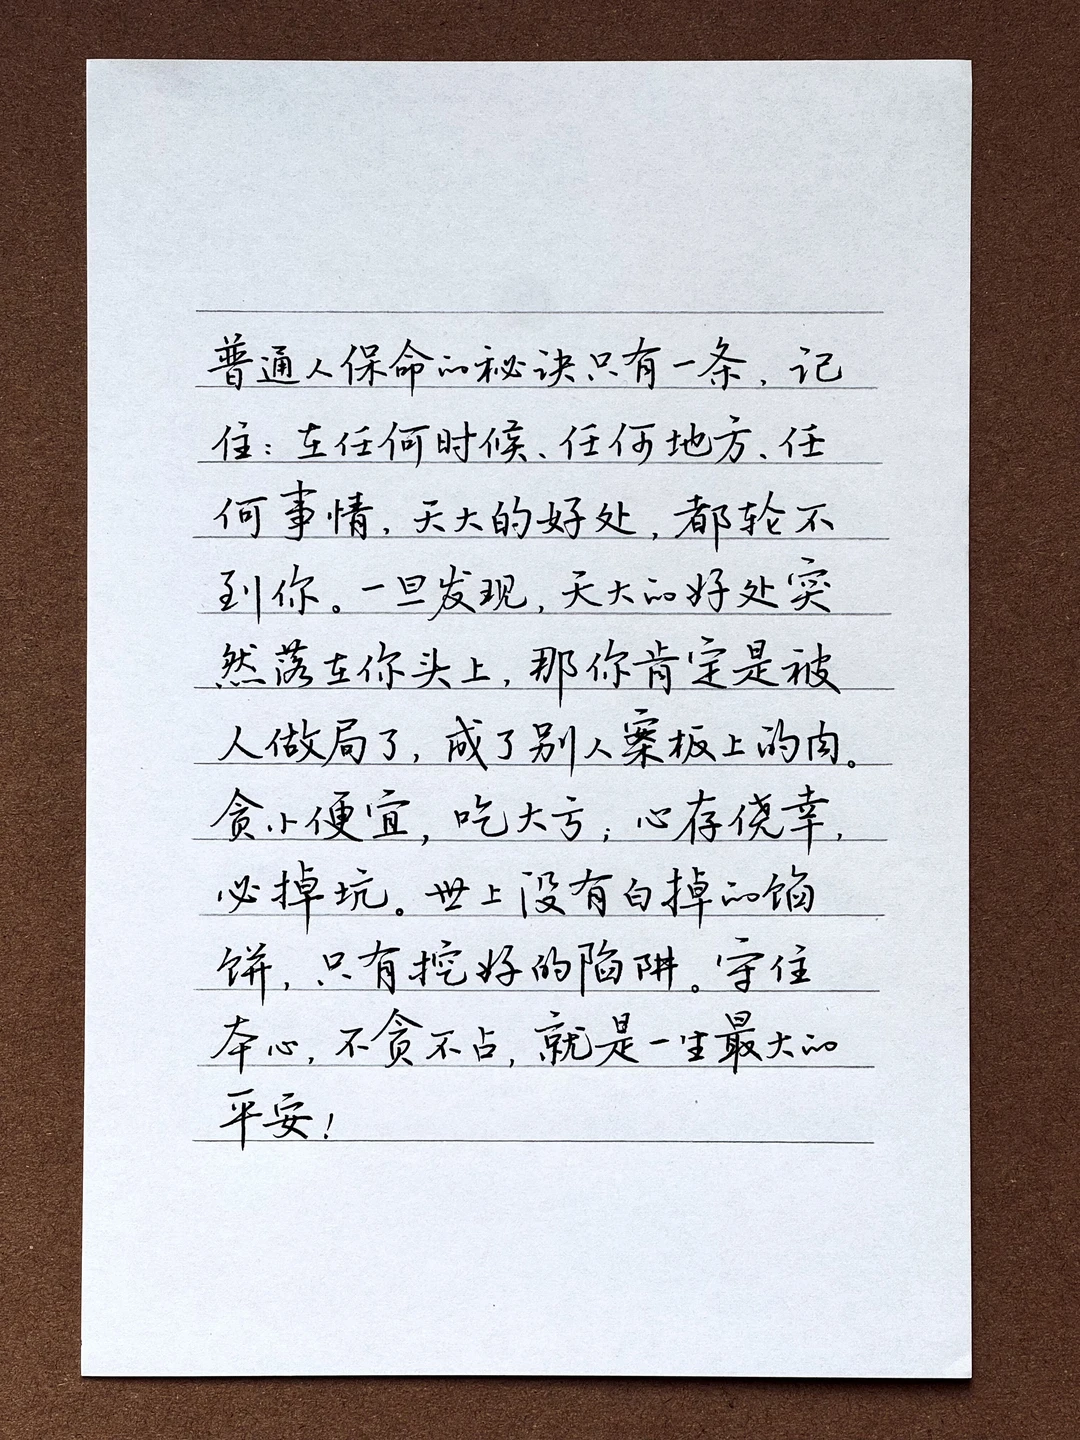 普通人保命的秘诀只有一条，记
住：在任何时候、任何地方、任
何事情，天大的好处，都轮不
到你。一旦发现，天大的好处突
然落在你头上，那你肯定是被
人做局了，成了别人案板上的肉。
贪小便宜，吃大亏；心存侥幸，
必掉坑。世上没有白掉的馅
饼，只有挖好的陷阱。守住
本心，不贪不占，就是一生最大的
平安！